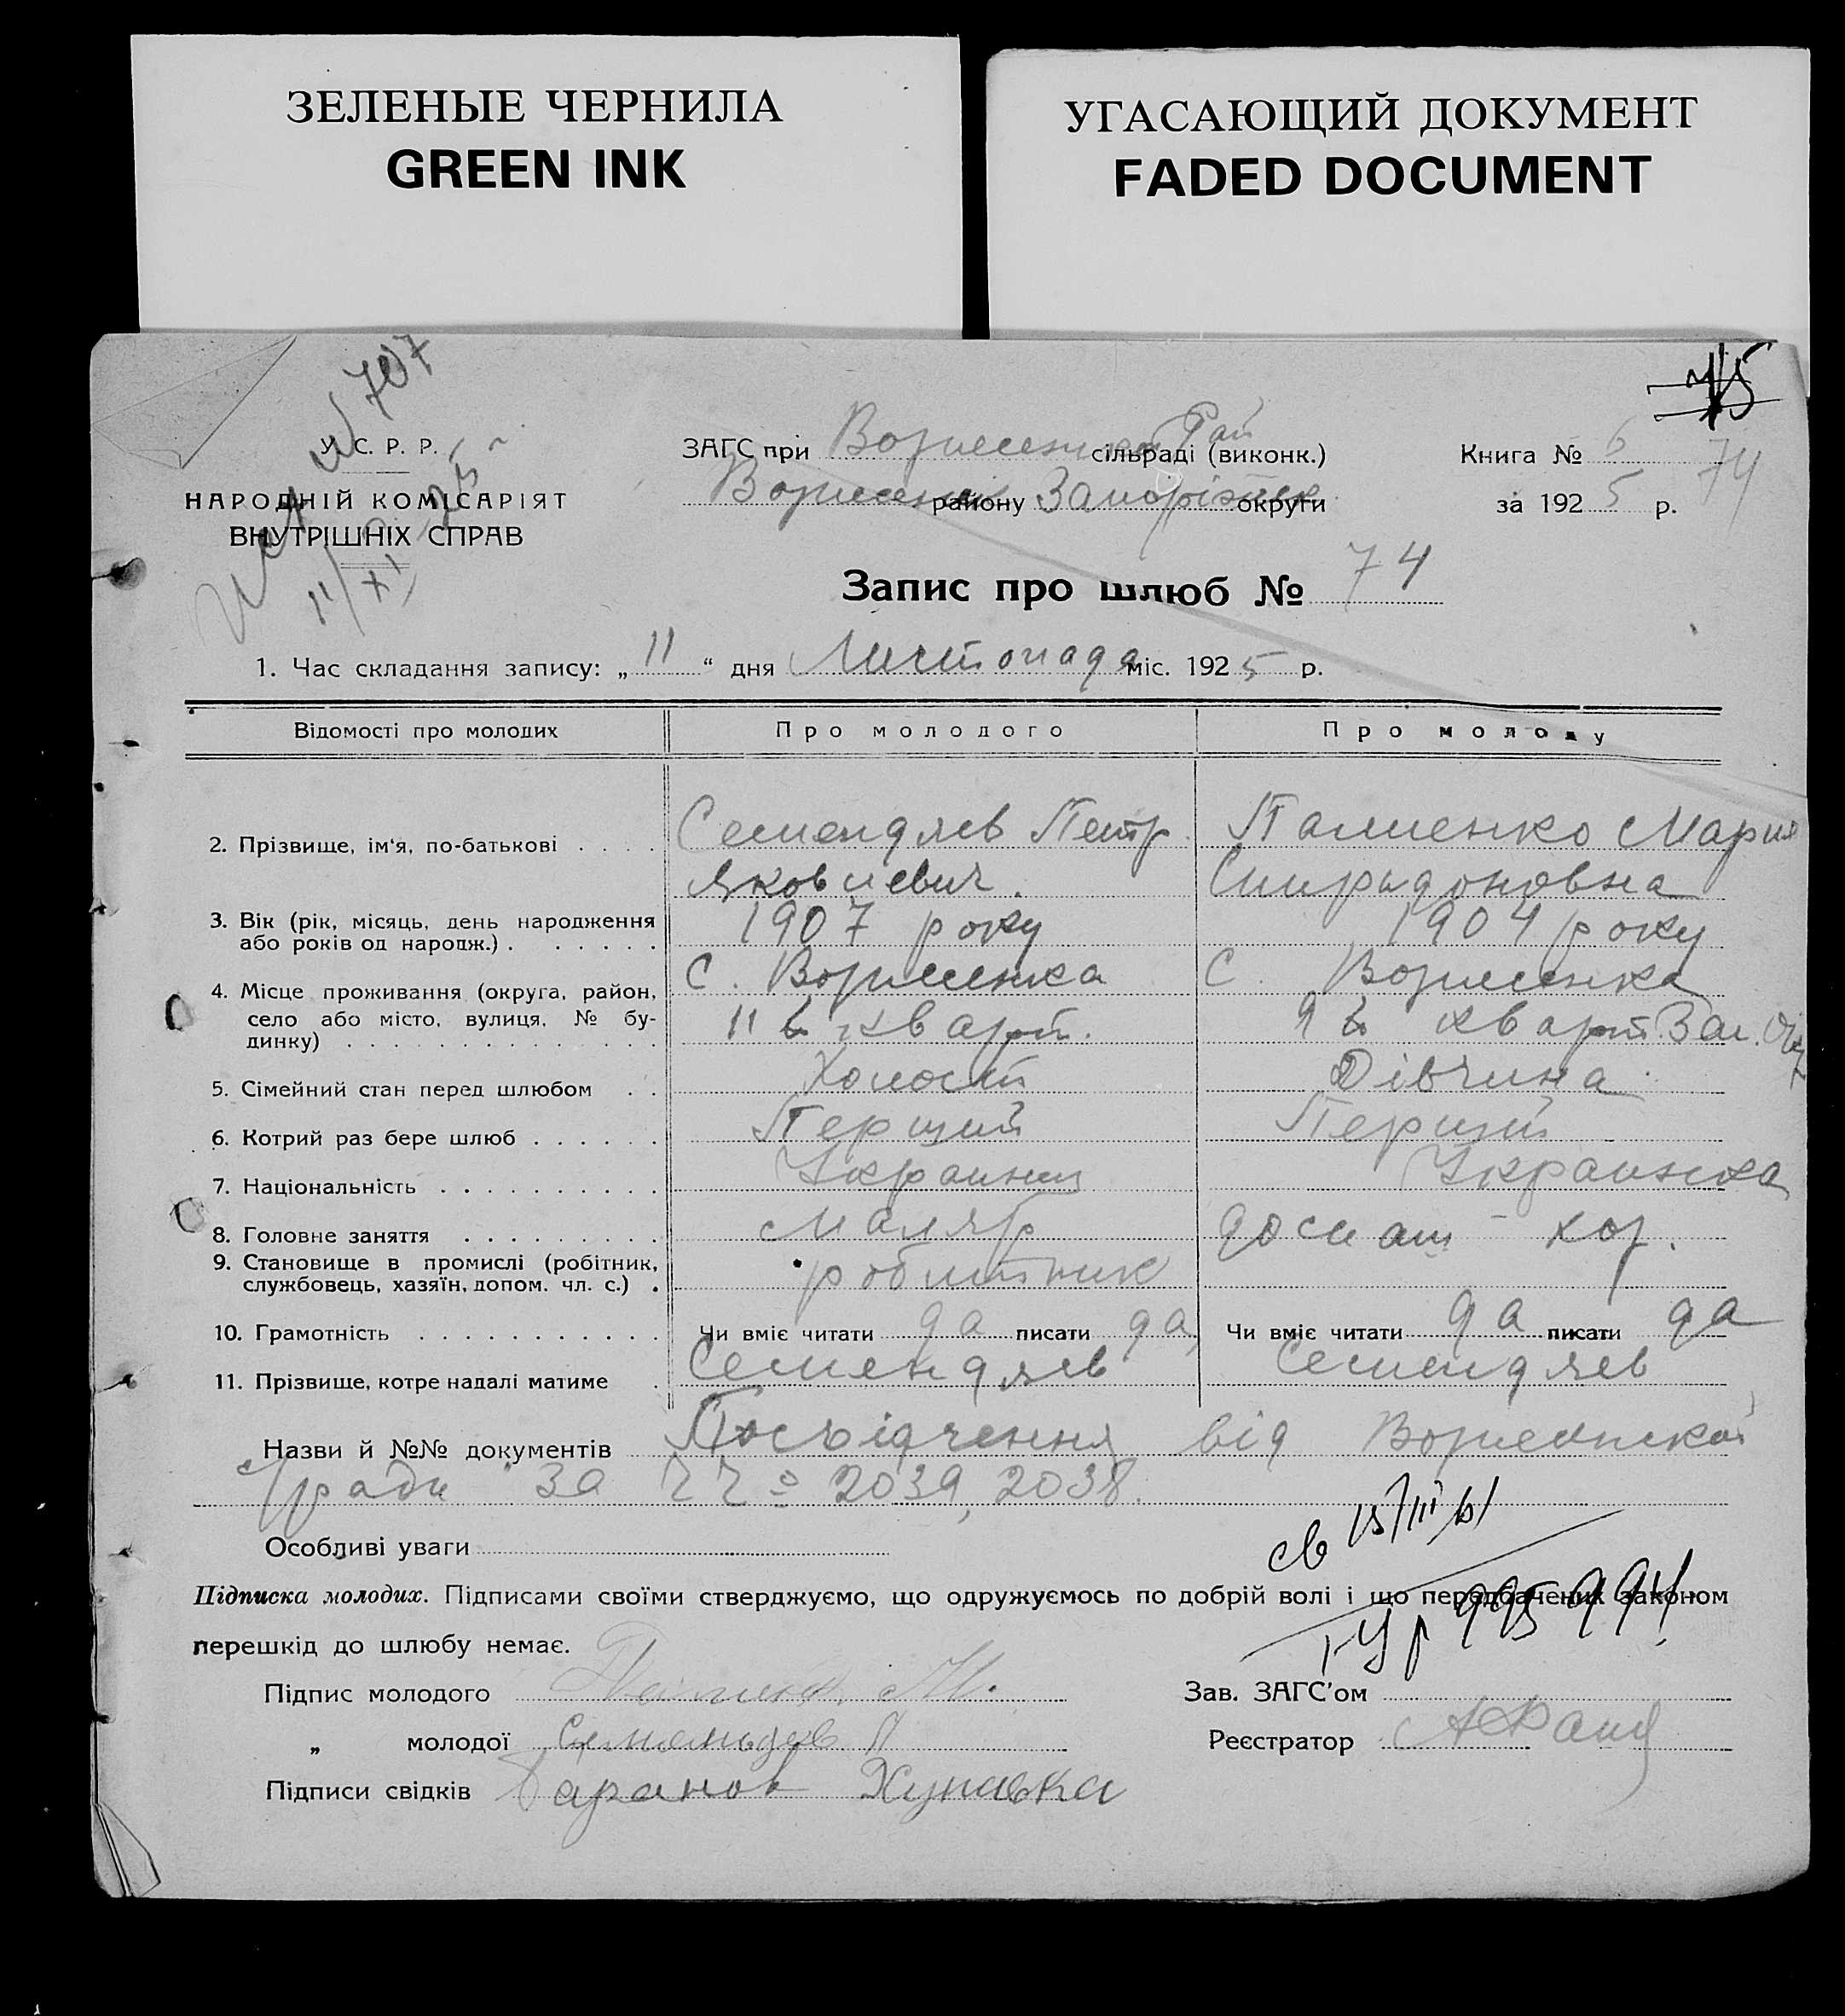 ЗЕЛЕНЫЕ ЧЕРНИЛА
GREEN INK
УГАСАЮЩИЙ ДОКУМЕНТ
FADED DOCUMENT
№ 707
75
У. С. Р. Р.
НАРОДНІЙ КОМІСАРІЯТ
ВНУТРІШНІХ СПРАВ
11/XI 25
ЗАГС при Рай сільраді (виконк.)
району округи
Книга № 6
за 1925 р.
74
Запис про шлюб № 74
1. Час складання запису: „11“ дня Листопада міс. 1925 р.
Відомості про молодих Про молодого Про молоду
2. Прізвище, ім'я, по-батькові Семендяев Петр Памненко Мария
Яковлевич. Спиридоновна
3. Вік (рік, місяць, день народження або років од народж.) 1907 року 1904 року
4. Місце проживання (округа, район, село або місто, вулиця, № будинку) С. Вознесенка С. Вознесенка
11 й кварт. 9 й кварт. Зап. Окр
5. Сімейний стан перед шлюбом Холост Дівчина
6. Котрий раз бере шлюб Перший Перший
7. Національність Украинец Украинка
8. Головне заняття Маляр
9. Становище в промислі (робітник, службовець, хазяїн, допом. чл. с.) робитник
10. Грамотність Чи вміє читати да писати да Чи вміє читати да писати да
11. Прізвище, котре надалі матиме Семендяев Семендяев
Назви й №№ документів Посвідчення від Вознесенской
с/ради за 2039, 2038.
Особливі уваги
св 15/III 61
Підписка молодих. Підписами своїми стверджуємо, що одружуємось по добрій волі і що передбачених законом
перешкід до шлюбу немає.
995 994
Підпис молодого М.
„ молодої П
Підписи свідків Таранов
Зав. ЗАГС'ом
Реєстратор